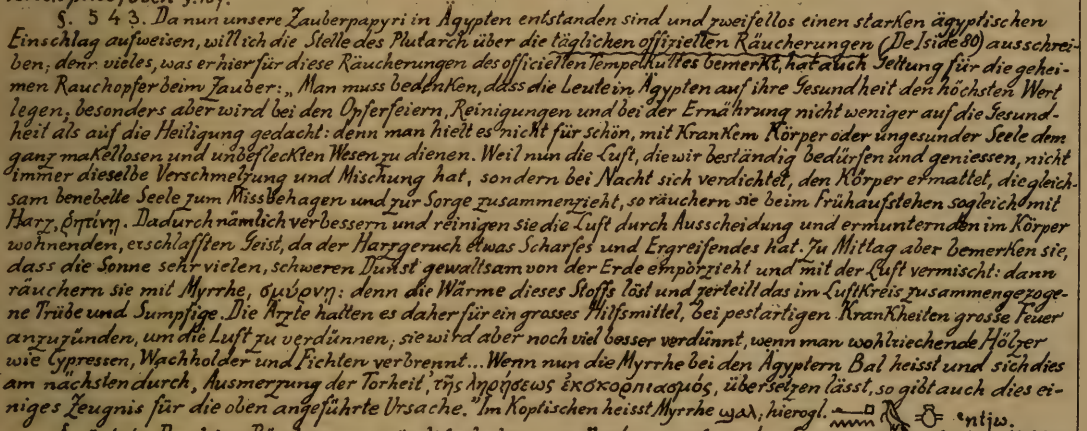 §. 543. Da nun unsere Zauberpapyri in Ägypten entstanden sind und zweifellos einen starken ägyptischen
Einschlag aufweisen, will ich die Stelle des Plutarch über die täglichen offiziellen Räucherungen (De Iside 80) ausschrei-
ben; denn vieles, was er hier für diese Räucherungen des officiellen Tempelkultes bemerkt, hat auch Geltung für die gehei-
men Rauchopfer beim Zauber: „Man muss bedenken, dass die Leute in Ägypten auf ihre Gesundheit den höchsten Wert
legen, besonders aber wird bei den Opferfeiern, Reinigungen und bei der Ernährung nicht weniger auf die Gesund-
heit als auf die Heiligung gedacht: denn man hielt es nicht für schön, mit krankem Körper oder ungesunder Seele dem
ganz makellosen und unbefleckten Wesen zu dienen. Weil nun die Luft, die wir beständig bedürfen und geniessen, nicht
immer dieselbe Verschmelzung und Mischung hat, sondern bei Nacht sich verdichtet, den Körper ermattet, die gleich-
sam benebelte Seele zum Missbehagen und zur Sorge zusammenzieht, so räuchern sie beim Frühaufstehen sogleich mit
Harz, ῥητίνη. Dadurch nämlich verbessern und reinigen sie die Luft durch Ausscheidung und ermuntern den im Körper
wohnenden, erschlafften Geist, da der Harzgeruch etwas Scharfes und Ergreifendes hat. Zu Mittag aber bemerken sie,
dass die Sonne sehr vielen, schweren Dunst gewaltsam von der Erde emporzieht und mit der Luft vermischt: dann
räuchern sie mit Myrrhe, σμύρνη: denn die Wärme dieses Stoffs löst und zerteilt das im Luftkreis zusammengezoge-
ne Trübe und Sumpfige. Die Ärzte halten es daher für ein grosses Hilfsmittel, bei pestartigen Krankheiten grosse Feuer
anzuzünden, um die Luft zu verdünnen; sie wird aber noch viel besser verdünnt, wenn man wohlriechende Hölzer
wie Cypressen, Wachholder und Fichten verbrennt... Wenn nun die Myrrhe bei den Ägyptern Bal heisst und sich dies
am nächsten durch „Ausmerzung der Torheit", τῆς ληρήσεως ἐκσκορπισμός, übersetzen lässt, so gibt auch dies ei-
niges Zeugnis für die oben angeführte Ursache." Im Koptischen heisst Myrrhe ϣⲁⲗ; hierogl. ꜥntjw.